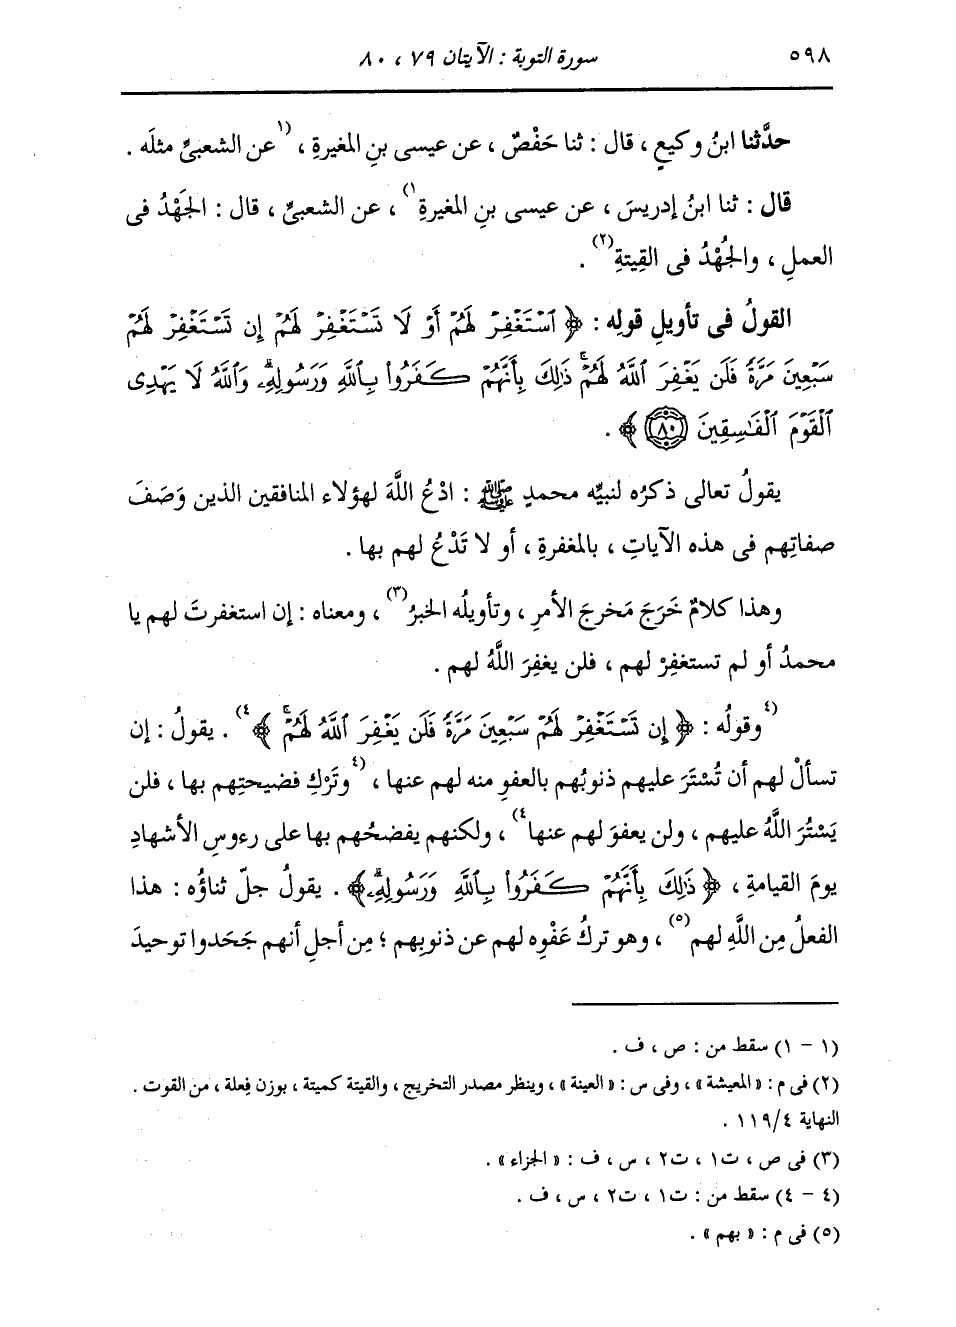 ٥٩٨ سورة التوبة : الآيتان ٧٩ ، ٨٠
حدَّثنا ابنُ وكيعٍ ، قال : ثنا حَفْصٌ ، عن عيسى بنِ المغيرةِ ، (١عن الشعبىِّ مثلَه .
قال : ثنا ابنُ إدريسَ ، عن عيسى بنِ المغيرةِ١) ، عن الشعبىِّ ، قال : الجَهْدُ فى
العملِ ، والجُهْدُ فى القِيتةِ(٢) .
القولُ فى تأويلِ قولِه : ﴿ ٱسْتَغْفِرْ لَهُمْ أَوْ لَا تَسْتَغْفِرْ لَهُمْ إِن تَسْتَغْفِرْ لَهُمْ
سَبْعِينَ مَرَّةً فَلَن يَغْفِرَ ٱللَّهُ لَهُمْۚ ذَٰلِكَ بِأَنَّهُمْ كَفَرُوا۟ بِٱللَّهِ وَرَسُولِهِۦۗ وَٱللَّهُ لَا يَهْدِى
ٱلْقَوْمَ ٱلْفَٰسِقِينَ ٨٠ ﴾ .
يقولُ تعالى ذكرُه لنبيِّه محمدٍ ﷺ : ادْعُ اللَّهَ لهؤلاء المنافقين الذين وَصَفَ
صفاتِهم فى هذه الآياتِ ، بالمغفرةِ ، أو لا تَدْعُ لهم بها .
وهذا كلامٌ خَرَجَ مَخرجَ الأمرِ ، وتأويلُه الخبرُ(٣) ، ومعناه : إن استغفرتَ لهم يا
محمدُ أو لم تستغفِرْ لهم ، فلن يغفِرَ اللَّهُ لهم .
(٤وقولُه : ﴿ إِن تَسْتَغْفِرْ لَهُمْ سَبْعِينَ مَرَّةً فَلَن يَغْفِرَ ٱللَّهُ لَهُمْۚ ﴾٤) . يقولُ : إن
تسألْ لهم أن تُسْتَرَ عليهم ذنوبُهم بالعفوِ منه لهم عنها ، (٤وتَرْكِ فضيحتِهم بها ، فلن
يَسْتُرَ اللَّهُ عليهم ، ولن يعفوَ لهم عنها٤) ، ولكنهم يفضحُهم بها على رءوسِ الأشهادِ
يومَ القيامةِ ، ﴿ ذَٰلِكَ بِأَنَّهُمْ كَفَرُوا۟ بِٱللَّهِ وَرَسُولِهِۦۗ﴾ . يقولُ جلّ ثناؤُه : هذا
الفعلُ مِن اللَّهِ لهم(٥) ، وهو تركُ عَفْوِه لهم عن ذنوبِهم ؛ مِن أجلِ أنهم جَحَدوا توحيدَ
(١ - ١) سقط من : ص ، ف .
(٢) فى م : « المعيشة » ، وفى س : « العينة » ، وينظر مصدر التخريج ، والقيتة كميتة ، بوزن فِعلة ، من القوت .
النهاية ٤/ ١١٩ .
(٣) فى ص ، ت١ ، ت٢ ، س ، ف : « الجزاء » .
(٤ - ٤) سقط من : ت١ ، ت٢ ، س ، ف .
(٥) فى م : « بهم » .